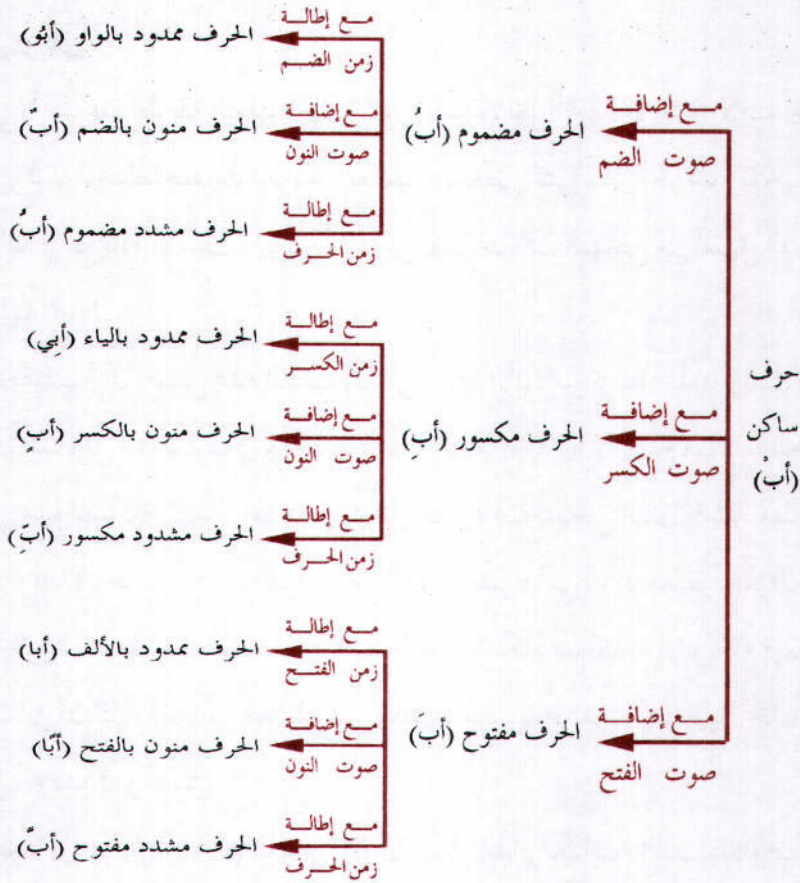 حرف
ساكن
(أبْ)
مـع إضافـة
صوت الضم
الحرف مضموم (أبُ)
مـع إطالـة
زمن الضـم
الحرف ممدود بالواو (أبُو)
مـع إضافـة
صوت النون
الحرف منون بالضم (أبٌ)
مـع إطالـة
زمن الحـرف
الحرف مشدد مضموم (أبُّ)
مـع إضافـة
صوت الكسر
الحرف مكسور (أبِ)
مـع إطالـة
زمن الكسـر
الحرف ممدود بالياء (أبِي)
مـع إضافـة
صوت النون
الحرف منون بالكسر (أبٍ)
مـع إطالـة
زمن الحـرف
الحرف مشدود مكسور (أبِّ)
مـع إضافـة
صوت الفتح
الحرف مفتوح (أبَ)
مـع إطالـة
زمن الفتـح
الحرف ممدود بالألف (أبا)
مـع إضافـة
صوت النون
الحرف منون بالفتح (أبًا)
مـع إطالـة
زمن الحـرف
الحرف مشدد مفتوح (أبَّ)